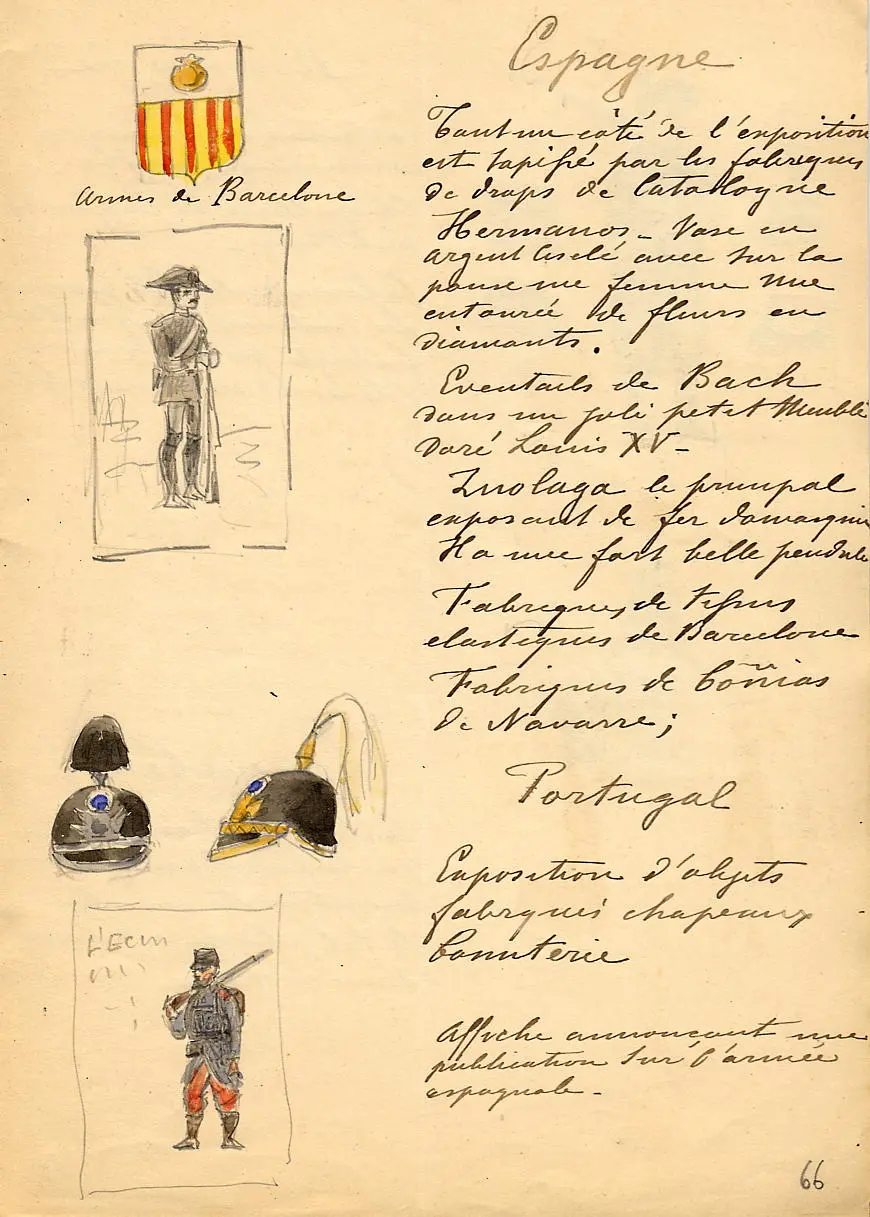 Espagne
Tout un côté de l'exposition
est tapissé par les fabriques
de draps de Catalogne
Hermanos - Vase en
argent ciselé avec sur la
panse une femme nue
entourée de fleurs en
diamants.
Eventails de Bach
dans un joli petit meuble
doré Louis XV -
Zuolaga le principal
exposant de fer damasquin
Il a une fort belle pendule
Fabriques de tissus
elastiques de Barcelone
Fabriques de
de Navarre ;
Portugal
Exposition d'objets
fabriqués chapeaux
Affiche annonçant une
publication sur l'armée
espagnole -
Armes de Barcelone
66